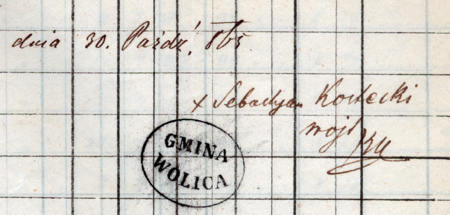 dnia 30. Paźdź. 865
x Sebastyan Kostecki
wojt
GMINA
WOLICA